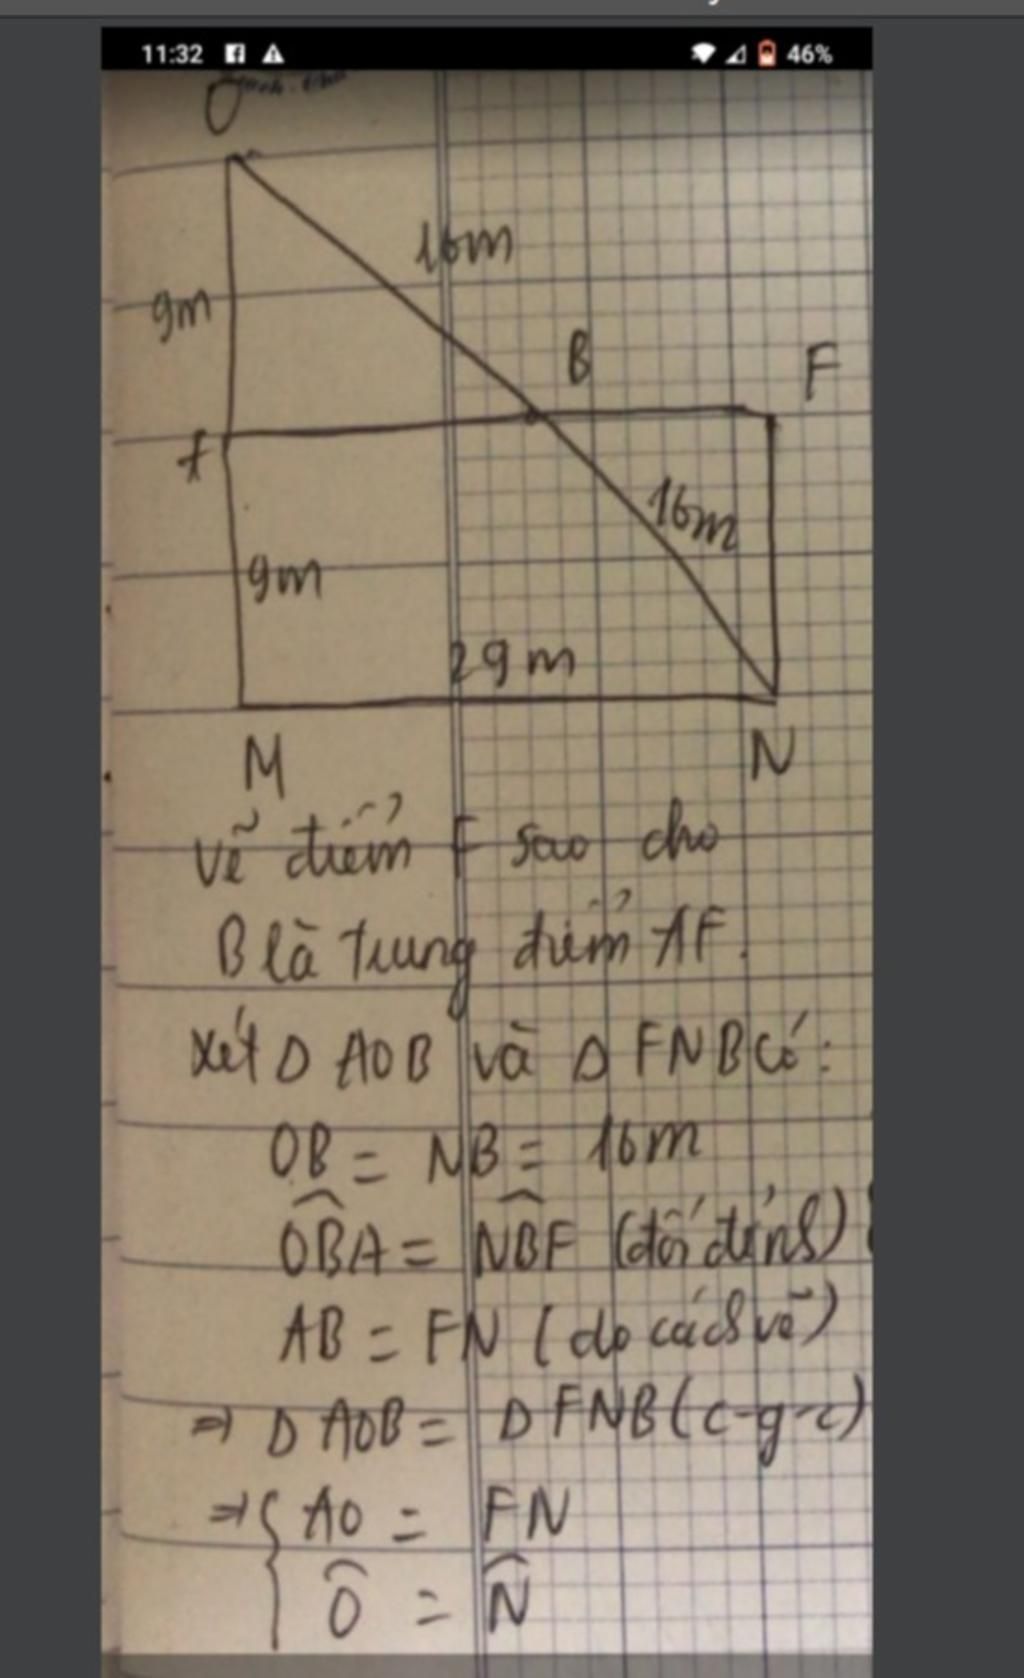 11:32
46%
O
16m
9m
B
F
A
16m
9m
29m
M
N
Vẽ điểm F sao cho
B là trung điểm AF.
Xét Δ AOB và Δ FNB có:
OB = NB = 16m
OBA = NBF (đối đỉnh)
AB = FN (do cách vẽ)
⇒ Δ AOB = Δ FNB (c-g-c)
⇒ { AO = FN
O = N